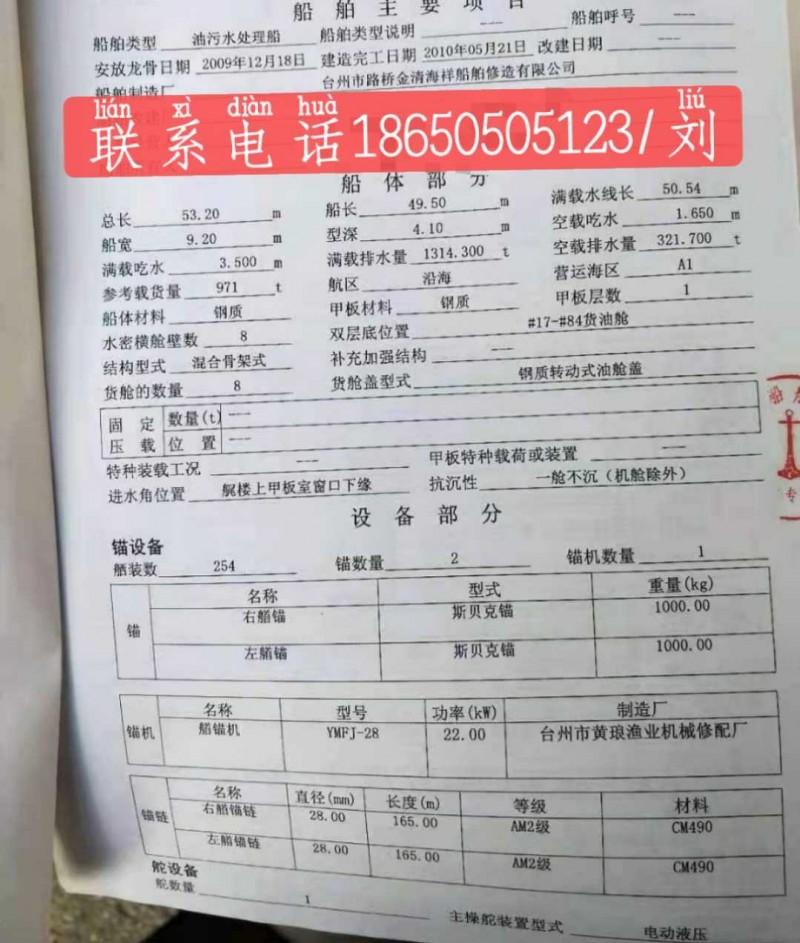 船 舶 主 要 项 目
船舶类型 油污水处理船 船舶类型说明 --- 船舶呼号 ---
安放龙骨日期 2009年12月18日 建造完工日期 2010年05月21日 改建日期 ---
船舶制造厂 台州市路桥金清海祥船舶修造有限公司
lián xì diàn huà liú
联系电话18650505123/刘
船 体 部 分
总长 53.20 m 船长 49.50 m 满载水线长 50.54 m
船宽 9.20 m 型深 4.10 m 空载吃水 1.650 m
满载吃水 3.500 m 满载排水量 1314.300 t 空载排水量 321.700 t
参考载货量 971 t 航区 沿海 营运海区 A1
船体材料 钢质 甲板材料 钢质 甲板层数 1
水密横舱壁数 8 双层底位置 #17-#84货油舱
结构型式 混合骨架式 补充加强结构 ---
货舱的数量 8 货舱盖型式 钢质转动式油舱盖
固 定 数量(t) ---
压 载 位 置 ---
特种装载工况 --- 甲板特种载荷或装置 ---
进水角位置 艉楼上甲板室窗口下缘 抗沉性 一舱不沉（机舱除外）
设 备 部 分
锚设备
舾装数 254 锚数量 2 锚机数量 1
锚 名称 型式 重量(kg)
右艏锚 斯贝克锚 1000.00
左艏锚 斯贝克锚 1000.00
锚机 名称 型号 功率(kW) 制造厂
艏锚机 YMFJ-28 22.00 台州市黄琅渔业机械修配厂
锚链 名称 直径(mm) 长度(m) 等级 材料
右艏锚链 28.00 165.00 AM2级 CM490
左艏锚链 28.00 165.00 AM2级 CM490
舵设备
舵数量 1 主操舵装置型式 电动液压
船
专